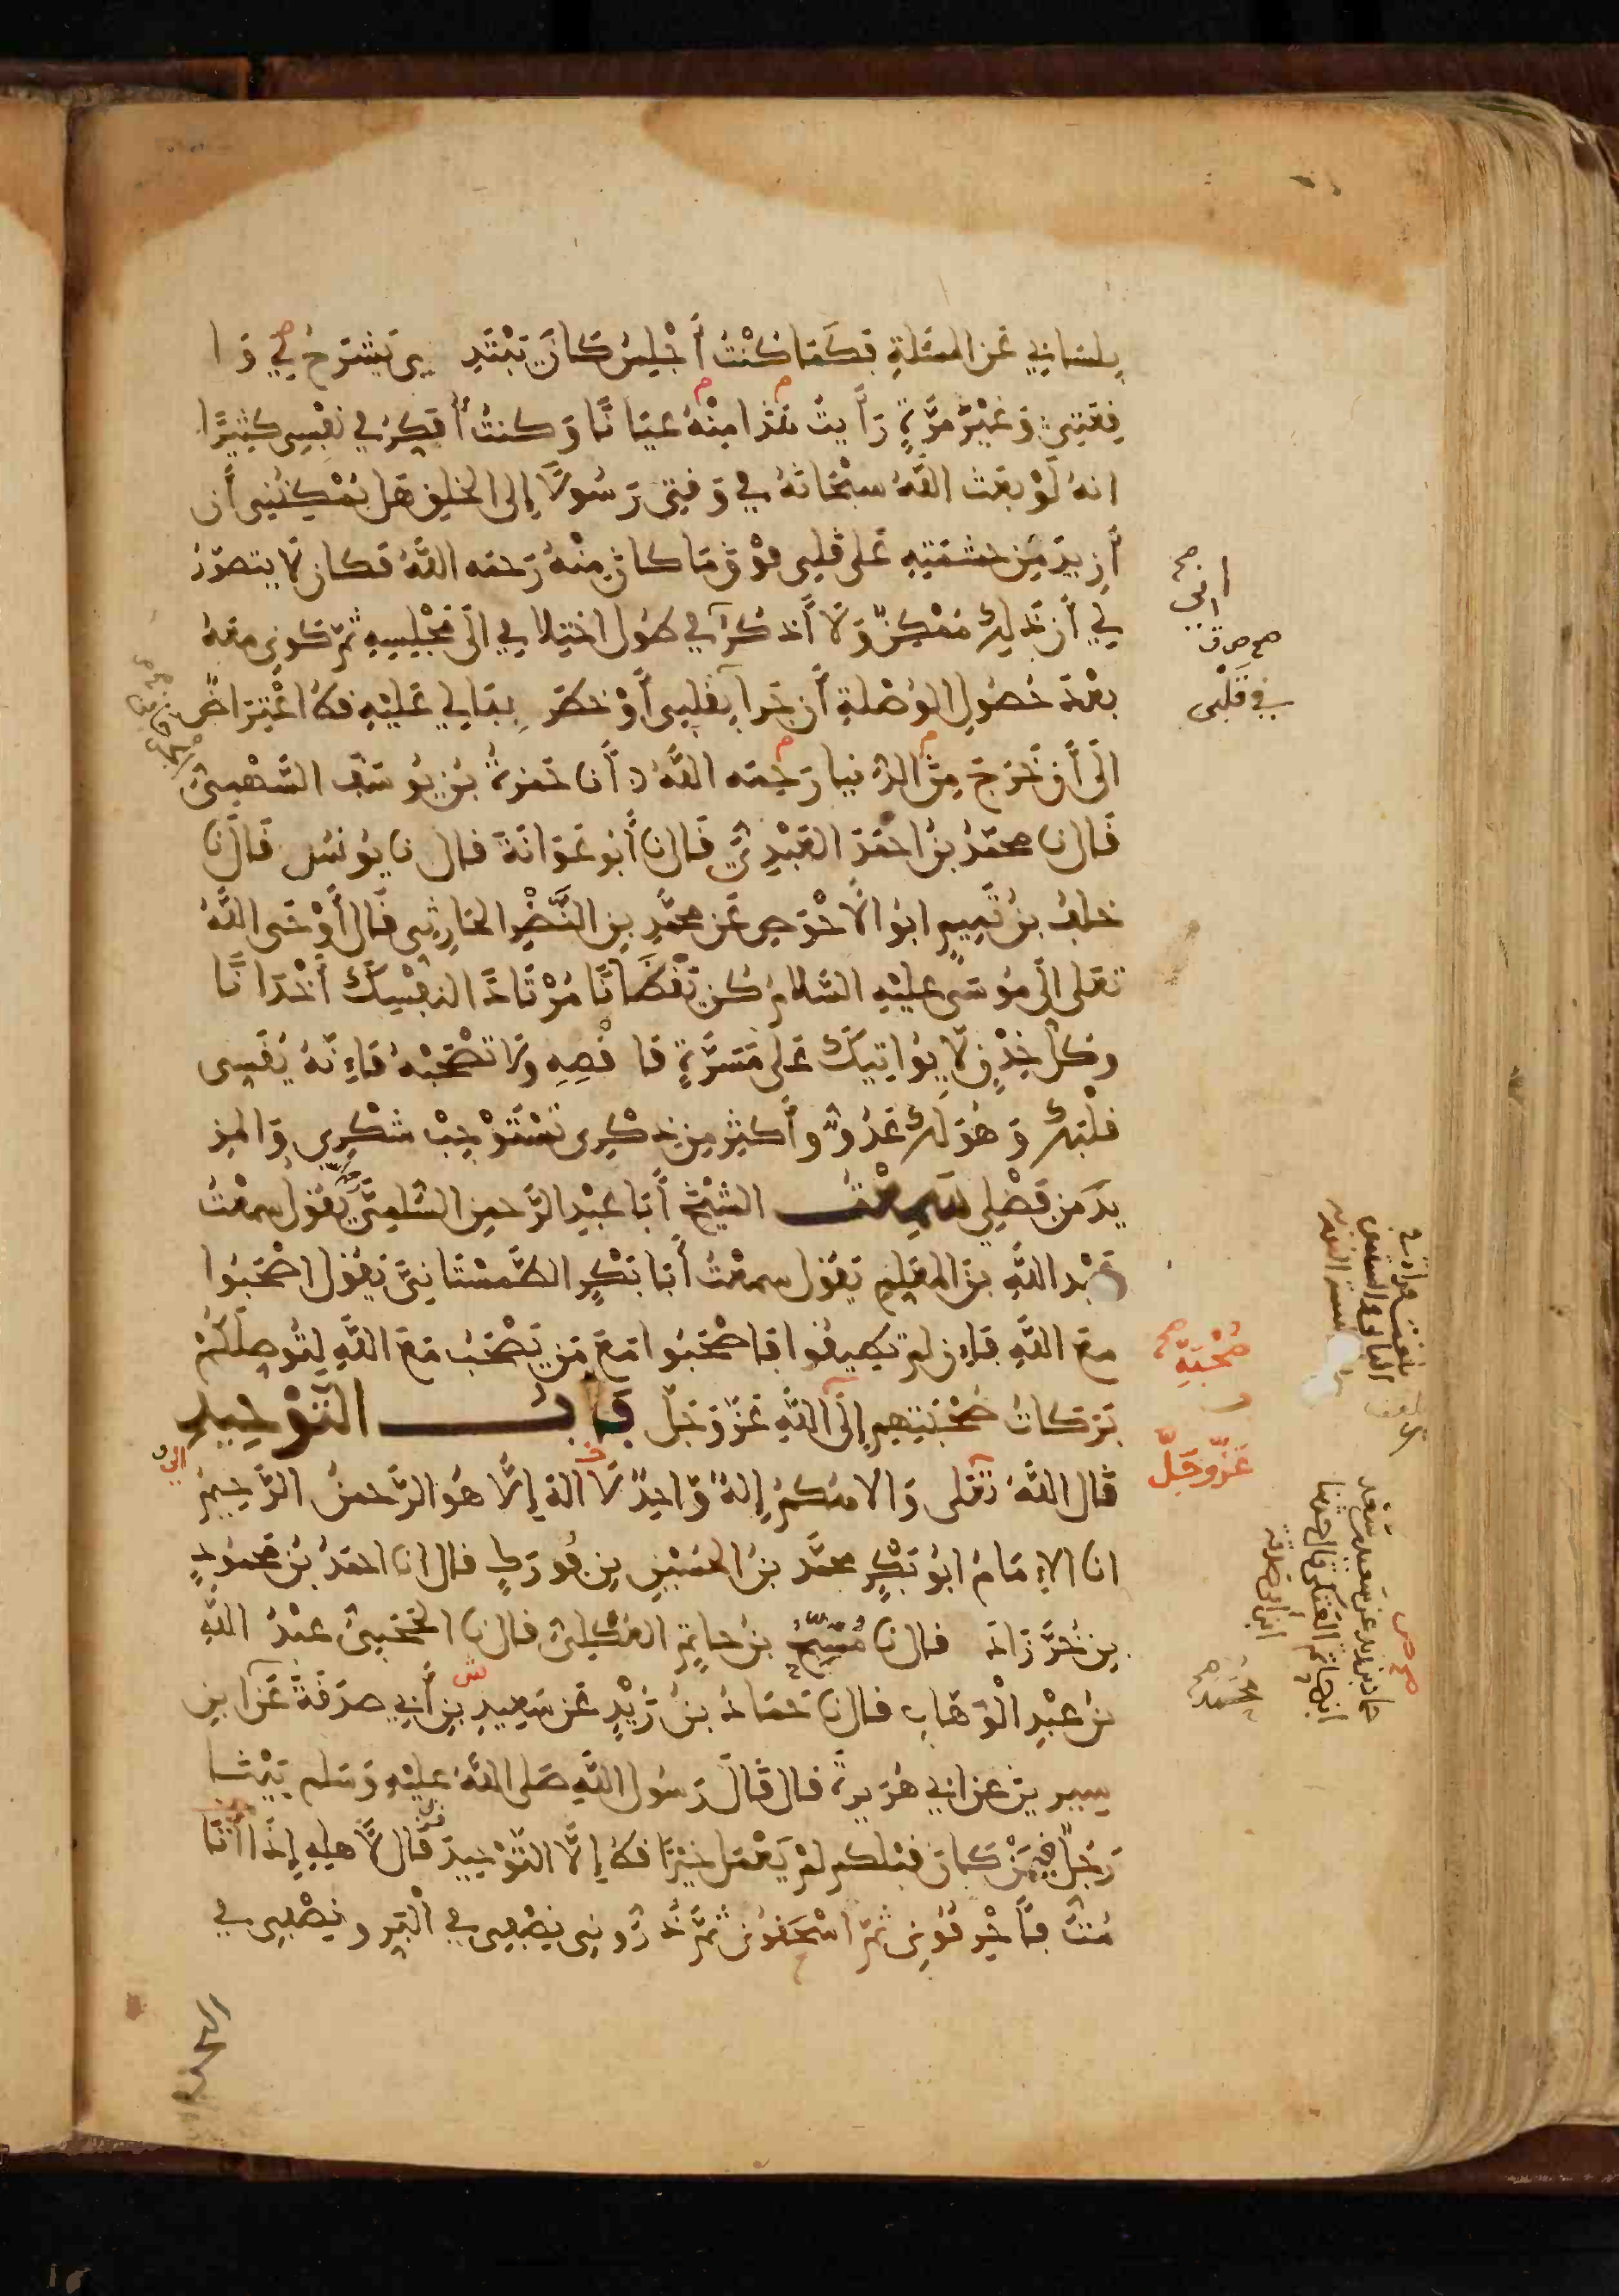 بلساني عن المسئلة فكما كنت أجلس كان يبتدي بشرح لي وا
فعتي وغير مرة رأيت هذا منه عيانا وكنت أفكر في نفسي كثيرا
انه لو بعث الله سبحانه في وقتي رسولا إلى الخلق هل يمكنني أن
أزيد من حشمته على قلبي فوق ما كان منه رحمه الله فكان لا يتصور
لي أن ذلك ممكن ولا أذكر أني في طول اختلافي الى مجلسه ثم كوني معه
بعد حصول الوصلة أن جرا بقلبي أو خطر ببالي عليه قط اعتراض
الى أن خرج من الدنيا رحمه الله أنا حمزة بن يوسف السهمي
قال نا محمد بن احمد العبدي قال نا أبو عوانة قال نا يونس قال نا
خلف بن تميم ابو الاحوص عن محمد بن النضر الحارثي قال أوحى الله
تعلى الى موسى عليه السلام كن يقظانا مرتادا لنفسك أخدانا
وكل خدن لا يواتيك على مسرة فاقصه ولا تصحبه فإنه يقسي
قلبك وهو لك عدو وأكثر من ذكري تستوجب شكري والمز
يد من فضلي سمعت الشيخ أبا عبد الرحمن السلمي يقول سمعت
عبد الله بن المعلم يقول سمعت أبا بكر الطمستاني يقول اصحبوا
مع الله فإن لم تطيقوا فاصحبوا مع من يصحب مع الله لتوصلكم
بركات صحبتهم إلى الله عز وجل باب التوحيد
قال الله تعلى والاهكم إله واحد لا اله إلا هو الرحمن الرحيم
انا الإمام ابو بكر محمد بن الحسين بن فورك قال انا احمد بن محمود
بن خرزاذ قال نا مسبح بن حاتم العكلي قال نا الحجبي عبد الله
بن عبد الوهاب قال نا حماد بن زيد عن سعيد بن أبي صدقة عن ابن
سيرين عن ابي هريرة قال قال رسول الله صلى الله عليه وسلم بينما
رجل فيمن كان قبلكم لم يعمل خيرا قط إلا التوحيد قال لأهله إذا أنا
مت فأحرقوني ثم اسحقوني ثم ذروني نصفي في البر ونصفي في
انني صح
صح ص ق
في قلبي
صحبة صح
عز وجل
محمد صح